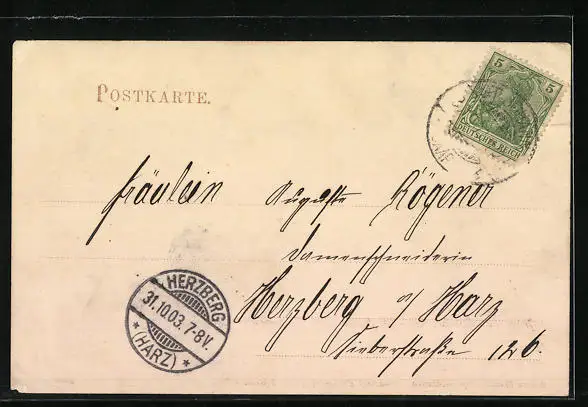 POSTKARTE.
5 5
DEUTSCHES REICH
Fräulein Auguste Rögener
Damenschneiderin
Herzberg a/ Harz
Sieberstraße 126.
HERZBERG
31.10.03.7-8V.
* (HARZ) *